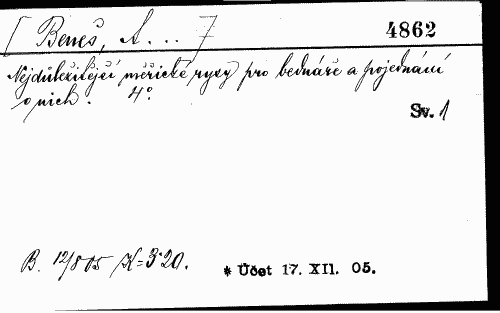 [ Beneš, A. . . ]
4862
Nejdůležitější měřické rysy pro bednáře a pojednání
o nich. 4°.
Sv. 1
B. 12/8 05 K=3·20.
* Účet 17. XII. 05.